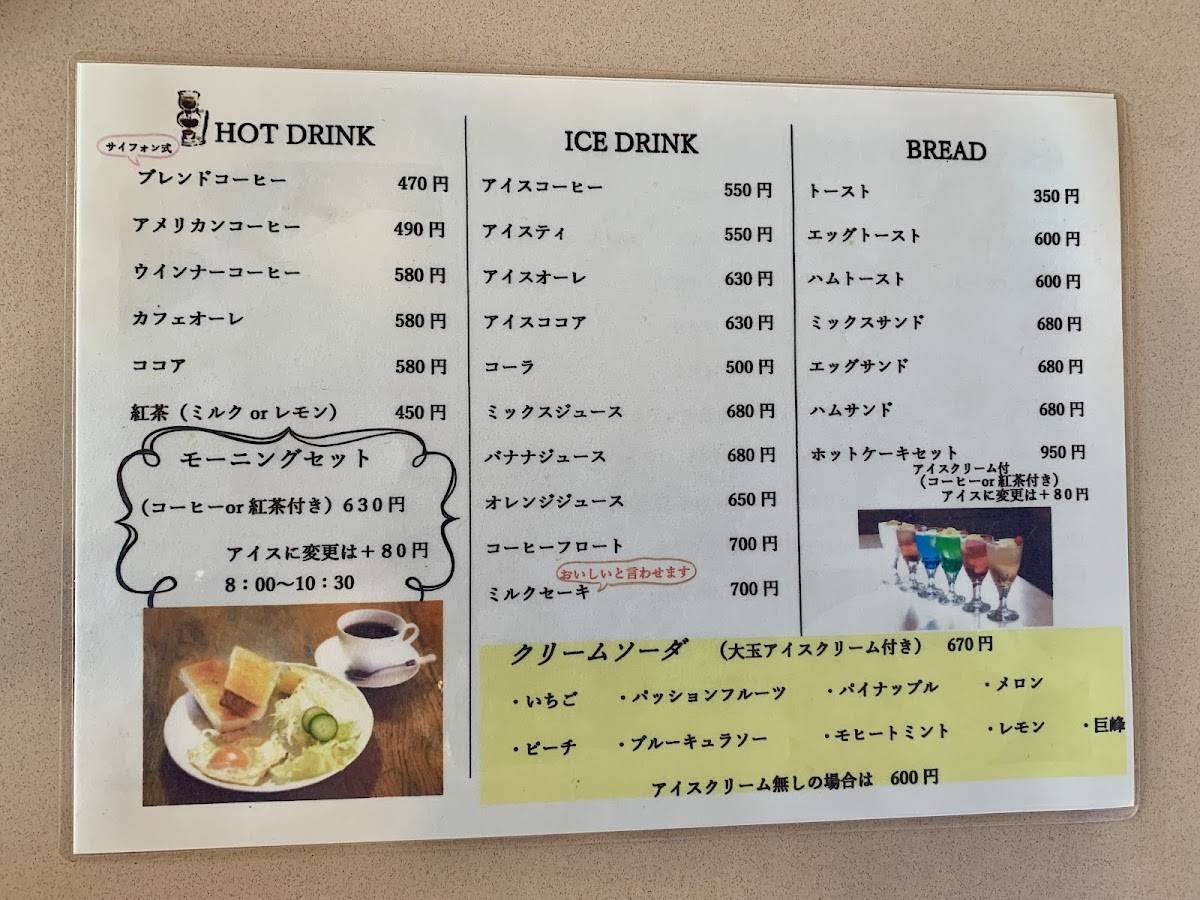 HOT DRINK
サイフォン式
ブレンドコーヒー 470円
アメリカンコーヒー 490円
ウインナーコーヒー 580円
カフェオーレ 580円
ココア 580円
紅茶（ミルク or レモン） 450円
モーニングセット
（コーヒーor 紅茶付き）630円
アイスに変更は＋80円
8：00〜10：30
ICE DRINK
アイスコーヒー 550円
アイスティ 550円
アイスオーレ 630円
アイスココア 630円
コーラ 500円
ミックスジュース 680円
バナナジュース 680円
オレンジジュース 650円
コーヒーフロート 700円
おいしいと言わせます
ミルクセーキ 700円
BREAD
トースト 350円
エッグトースト 600円
ハムトースト 600円
ミックスサンド 680円
エッグサンド 680円
ハムサンド 680円
ホットケーキセット 950円
アイスクリーム付
（コーヒーor 紅茶付き）
アイスに変更は＋80円
クリームソーダ （大玉アイスクリーム付き） 670円
・いちご ・パッションフルーツ ・パイナップル ・メロン
・ピーチ ・ブルーキュラソー ・モヒートミント ・レモン ・巨峰
アイスクリーム無しの場合は 600円